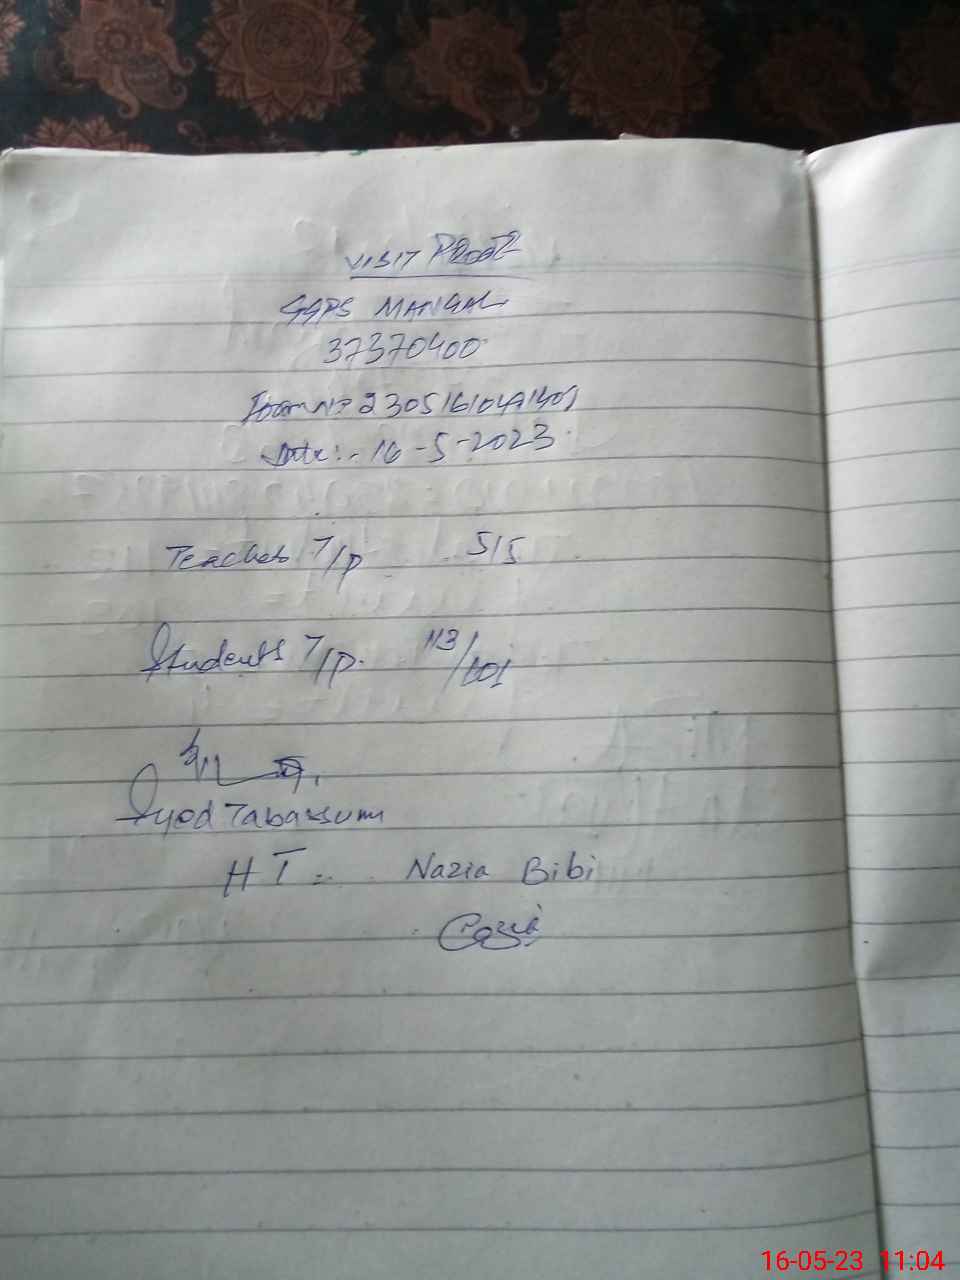 VISIT PROOF
GGPS MANGAL
37370400
Date:- 16-5-2023
Teachers T/P 5/5
Students T/P. 113/101
Syed Tabassum
HT:- Nazia Bibi
16-05-23 11:04